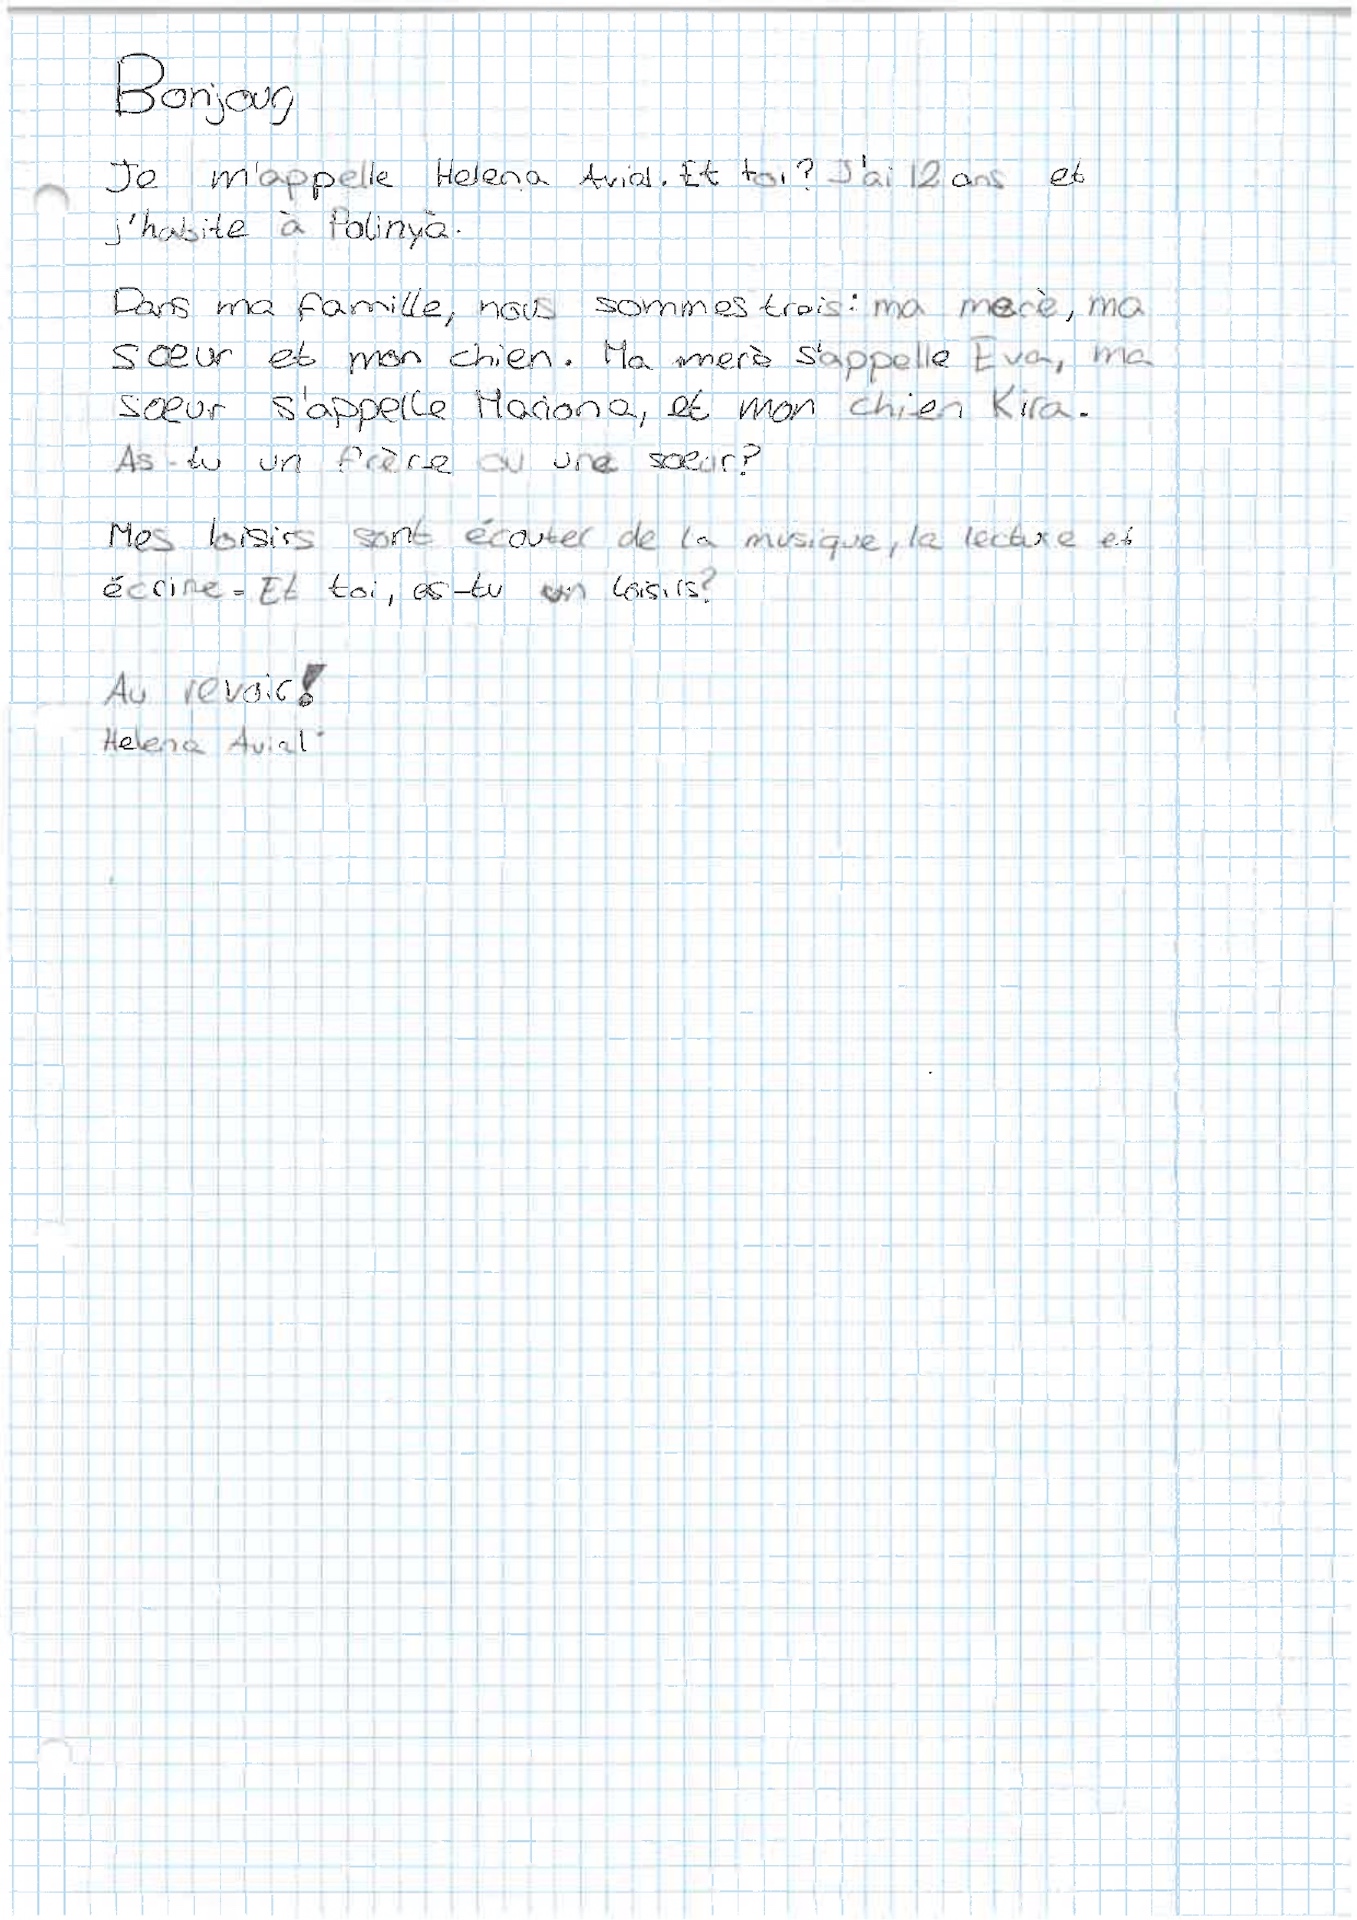 Bonjour
Je m'appelle Helena Avial. Et toi? J'ai 12 ans et
j'habite à Polinyà.
Dans ma famille, nous sommes trois: ma merè, ma
sœur et mon chien. Ma merè s'appelle Eva, ma
sœur s'appelle Mariona, et mon chien Kira.
As-tu un frère ou une sœur?
Mes loisirs sont écouter de la musique, la lecture et
écrire. Et toi, as-tu un loisirs?
Au revoir!
Helena Avial